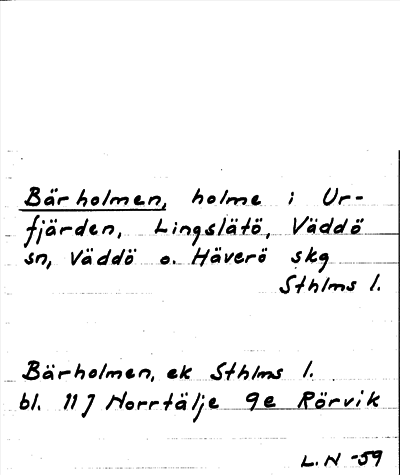 Bärholmen, holme i Ur-
fjärden, Lingslätö, Väddö
sn, Väddö o. Häverö skg
Sthlms l.
Bärholmen, ek Sthlms l.
bl. 117 Norrtälje 9e Rörvik
L.N -59